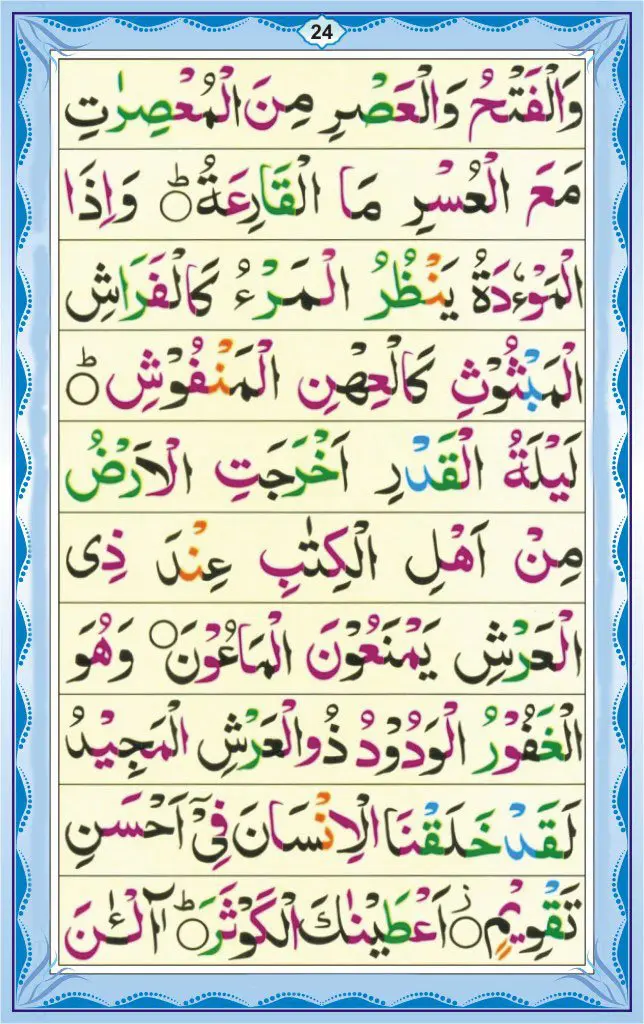 24
وَالْفَتْحُ وَالْعَصْرِ مِنَ الْمُعْصِرٰتِ
مَعَ الْعُسْرِ مَا الْقَارِعَةُ ۝ؕ وَاِذَا
الْمَوْءٗدَةُ يَنْظُرُ الْمَرْءُ كَالْفَرَاشِ
الْمَبْثُوْثِ كَالْعِهْنِ الْمَنْفُوْشِ ۝ؕ
لَيْلَةُ الْقَدْرِ اَخْرَجَتِ الْاَرْضُ
مِنْ اَهْلِ الْكِتٰبِ عِنْدَ ذِى
الْعَرْشِ يَمْنَعُوْنَ الْمَاعُوْنَ ۝ وَهُوَ
الْغَفُوْرُ الْوَدُوْدُ ذُوالْعَرْشِ الْمَجِيْدُ
لَقَدْ خَلَقْنَا الْاِنْسَانَ فِىْٓ اَحْسَنِ
تَقْوِيْمٍ ۝ز اَعْطَيْنٰكَ الْكَوْثَرَ ۝ؕ آلْـٰٔنَ